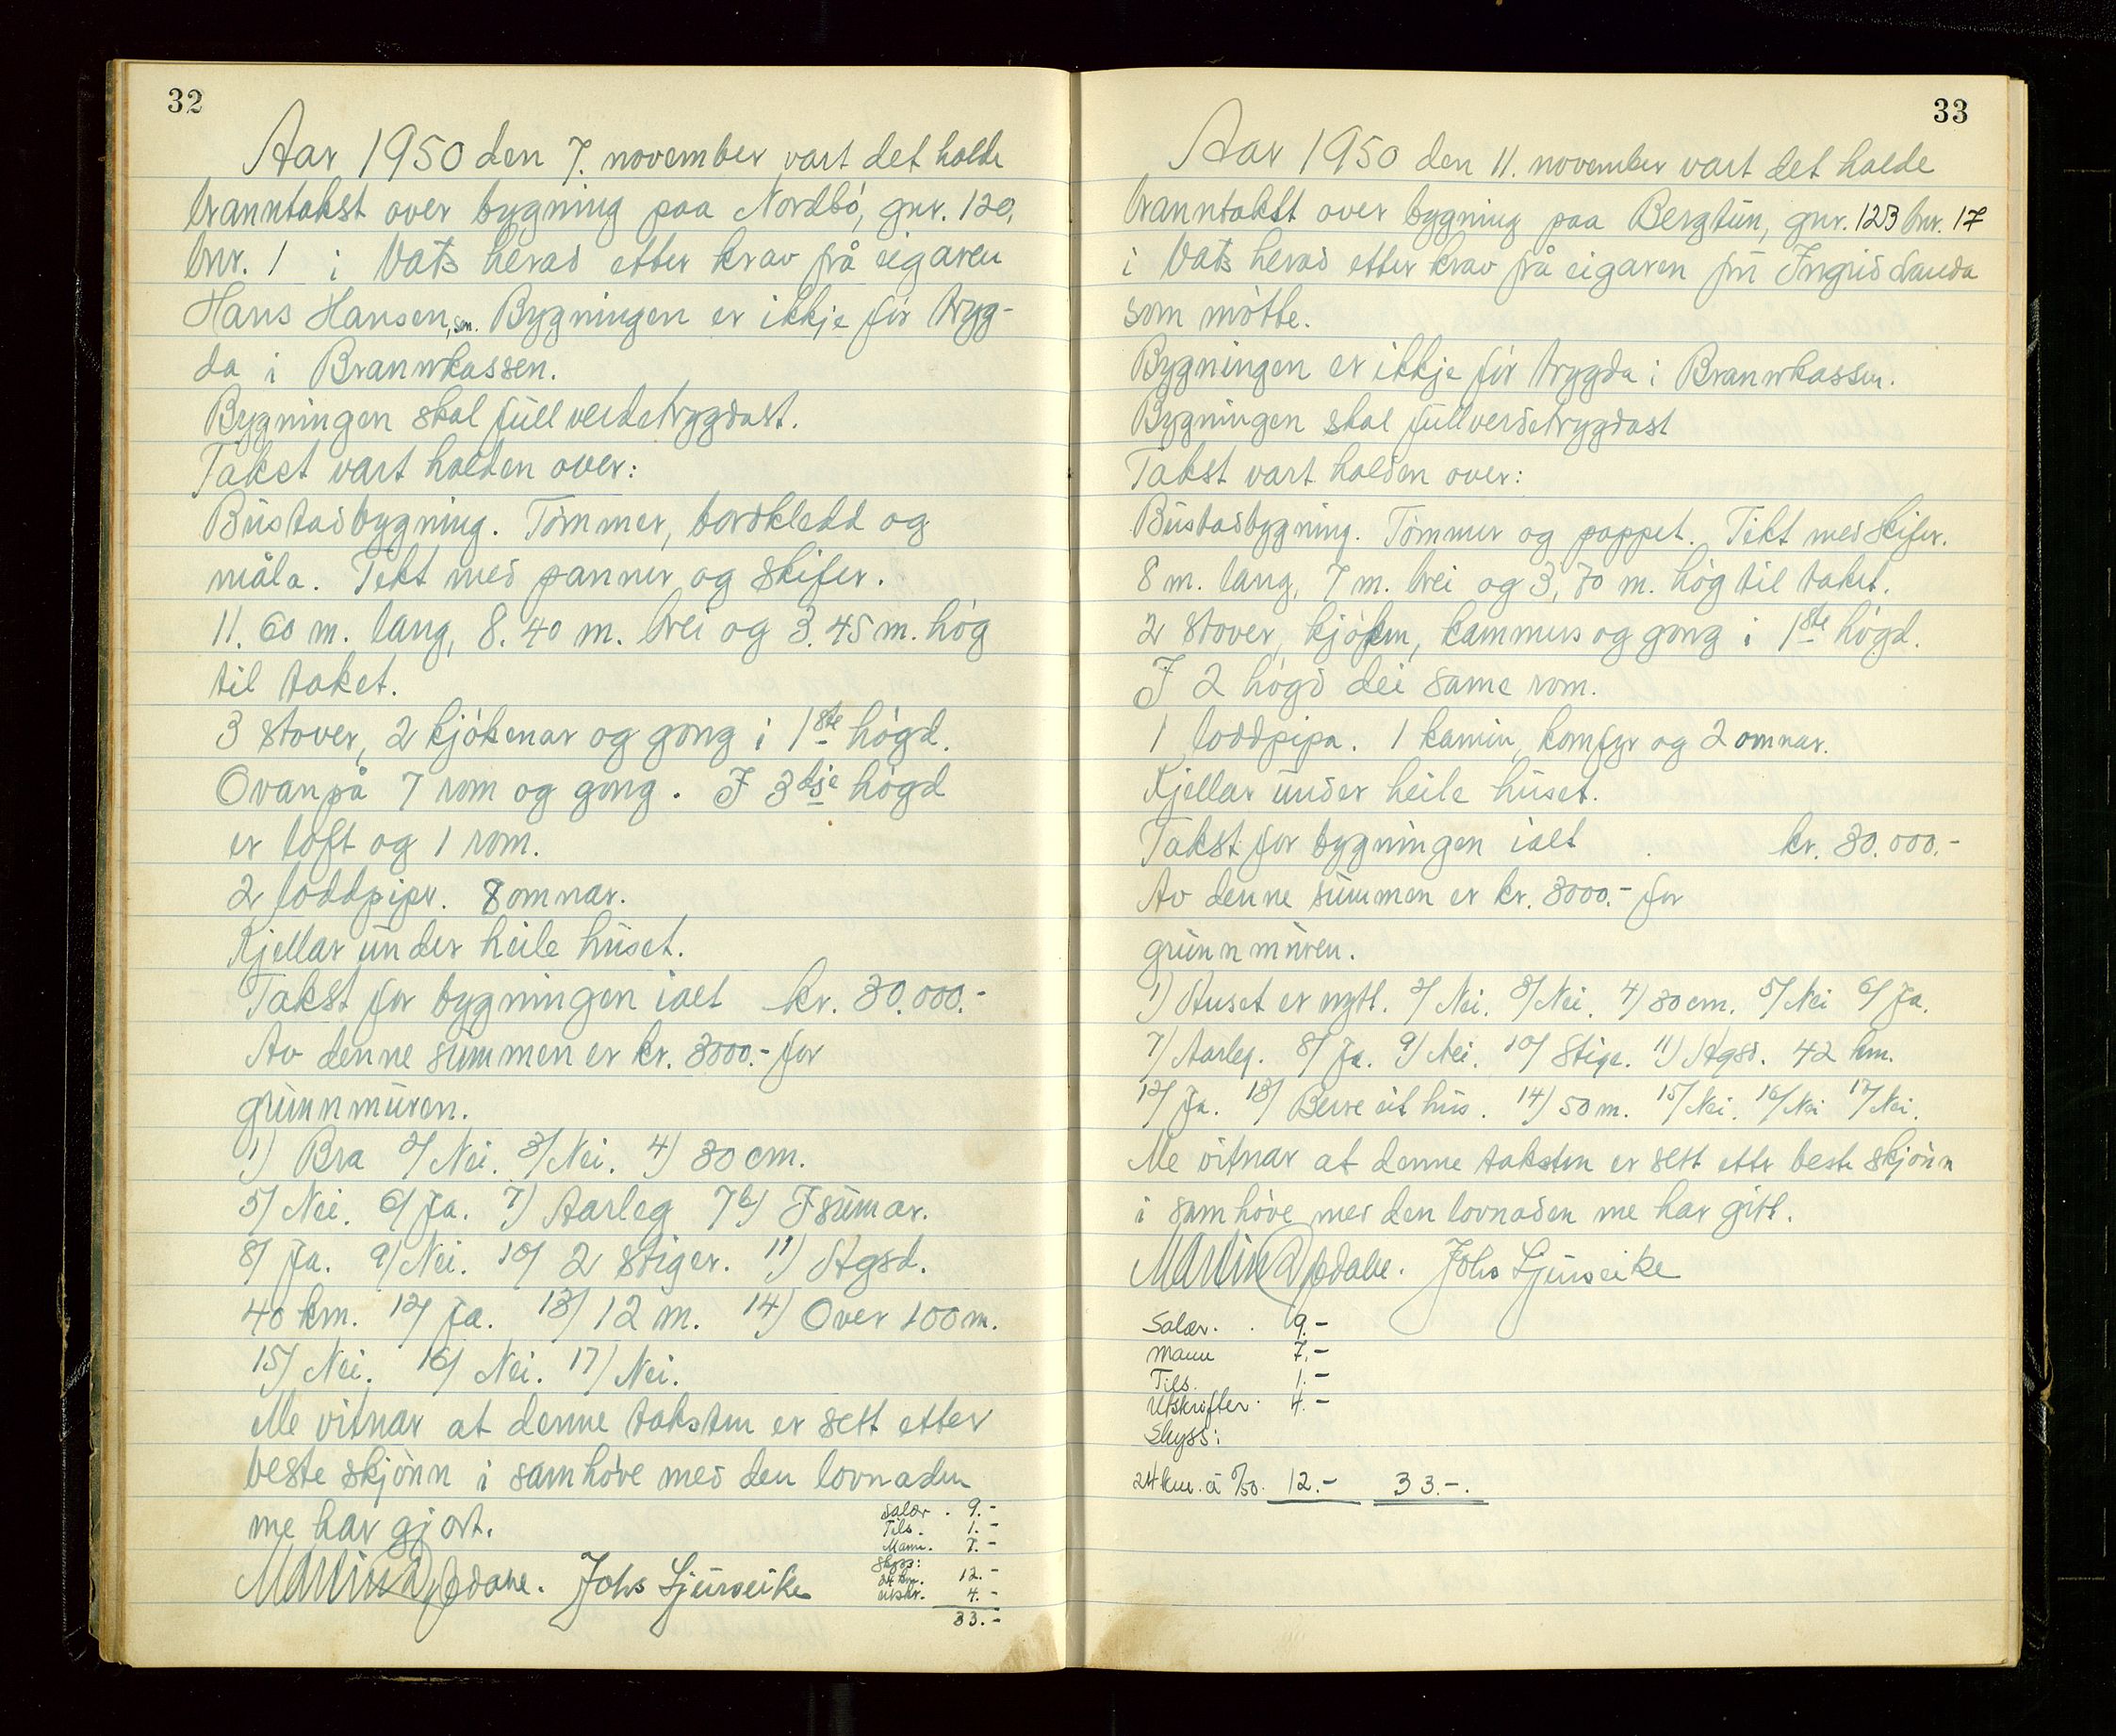 32
Aar 1950 den 7. november vart det halde
branntakst over bygning paa Nordbö, gnr. 120,
bnr. 1 i Vats herad etter krav frå eigaren
Hans Hansen, sen. Bygningen er ikkje för tryg-
da i Brannkassen.
Bygningen skal fullverdetrygdast.
Takst vart halden over:
Bustadbygning. Tömmer, bordkledd og
måla. Tekt med panner og skifer.
11.60 m. lang, 8.40 m. brei og 3.45 m. hög
til taket.
3 stover, 2 kjökenar og gong i 1ste högd.
Ovanpå 7 rom og gong. I 3dje högd
er loft og 1 rom.
2 loddpiper. 8 omnar.
Kjellar under heile huset.
Takst for bygningen ialt kr. 30.000.-
Av denne summen er kr. 3000.- for
grunnmuren.
1) Bra 2) Nei. 3) Nei. 4) 30 cm.
5) Nei. 6) Ja. 7) Aarleg 7b) I sumar.
8) Ja. 9) Nei. 10) 2 stiger. 11) Hgsd.
40 km. 12) Ja. 13) 12 m. 14) Over 100 m.
15) Nei. 16) Nei. 17) Nei.
Me vitnar at denne taksten er sett etter
beste skjönn i samhöve med den lovnaden
me har gjort.
Salær . 9.-
Tils. 1.-
Mann. 7.-
Skyss:
24 km. 12.-
Utskr. 4.-
33.-
Martin Opdahle. Johs Ljusveike
33
Aar 1950 den 11. november vart det halde
branntakst over bygning paa Bergtun, gnr. 123 bnr. 17
i Vats herad etter krav frå eigaren fru Ingrid Sauda
som mötte.
Bygningen er ikkje för trygda i Brannkassen.
Bygningen skal fullverdetrygdast
Takst vart halden over:
Bustadbygning. Tömmer og pappet. Tekt med skifer.
8 m. lang, 7 m. brei og 3,70 m. hög til taket.
2 stover, kjöken, kammers og gong i 1ste högd.
I 2 högd dei same rom.
1 loddpipa. 1 kamin, komfyr og 2 omnar.
Kjellar under heile huset.
Takst for bygningen ialt . kr. 30.000.-
Av denne summen er kr. 3000.- for
grunnmuren.
1) Huset er nytt. 2) Nei. 3) Nei. 4) 30 cm. 5) Nei 6) Ja.
7) Aarleg. 8) Ja. 9) Nei. 10) Stige. 11) Hgsd. 42 km.
12) Ja. 13) Berre eit hus. 14) 50 m. 15) Nei. 16) Nei 17) Nei.
Me vitnar at denne taksten er sett etter beste skjönn
i samhöve med den lovnaden me har gitt.
Martin Opdahle. Johs Ljusveike
Salær. . 9.-
Mann 7.-
Tils. 1.-
Utskrifter. 4.-
Skyss:
24 km. á 0/50. 12.- 33.-.